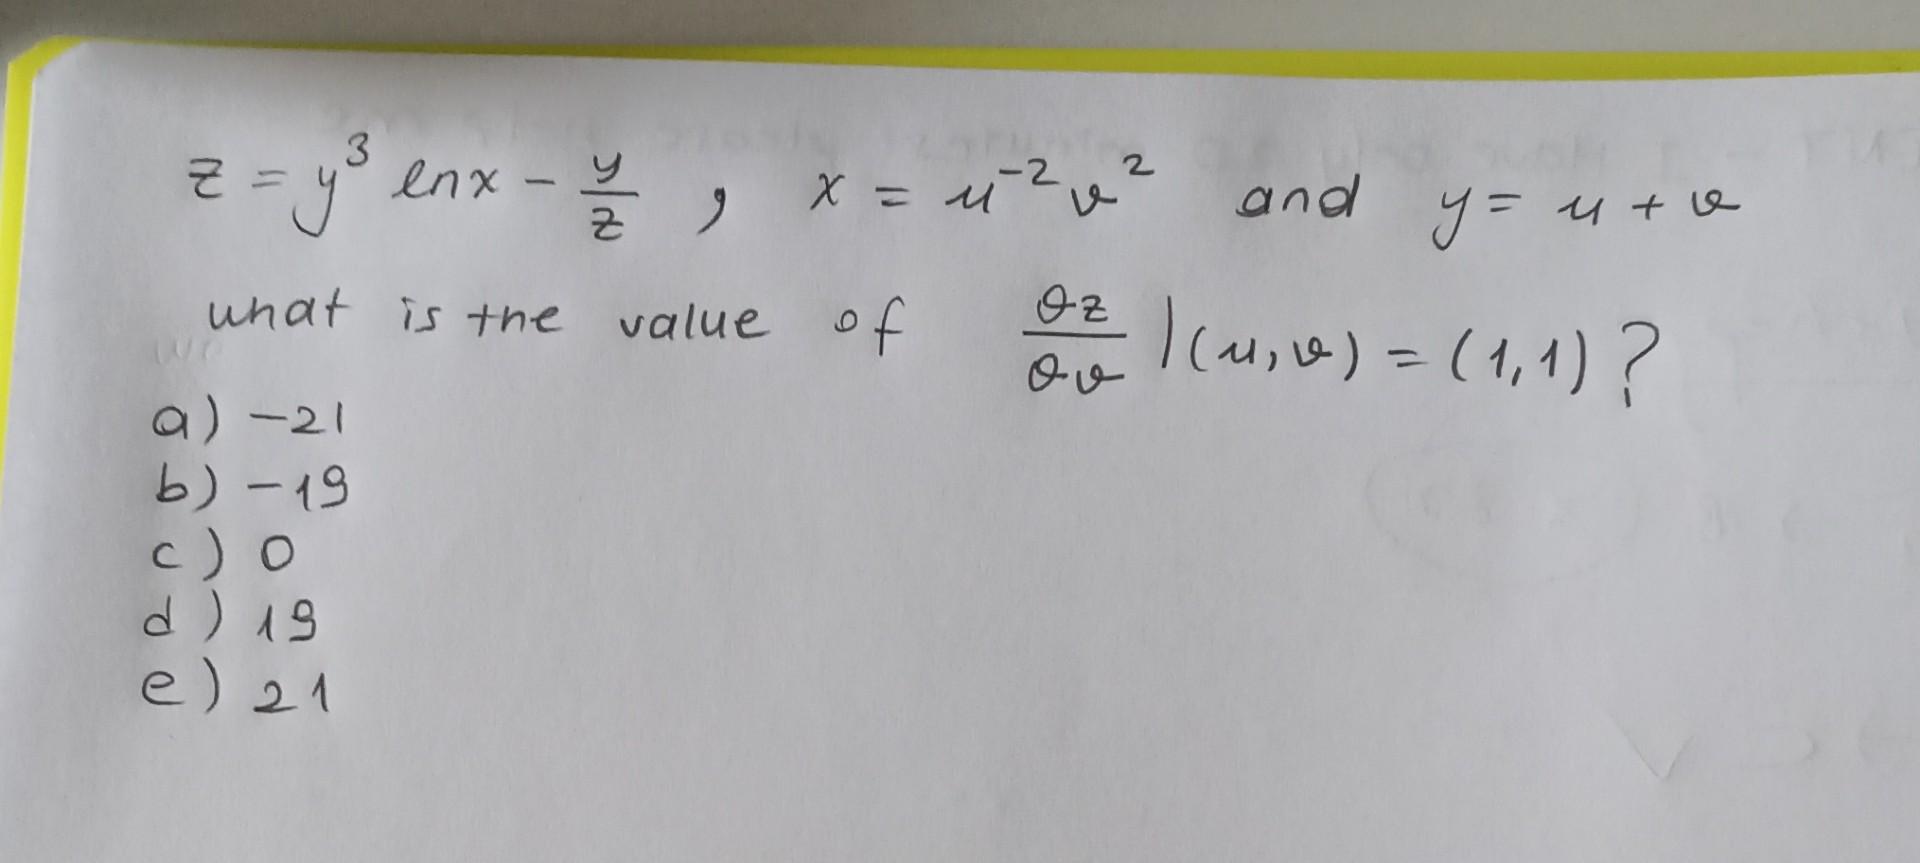 z = y³ lnx - y/z , x = u⁻²v² and y = u + v
what is the value of ∂z/∂v |(u,v) = (1,1) ?
a) -21
b) -19
c) 0
d) 19
e) 21